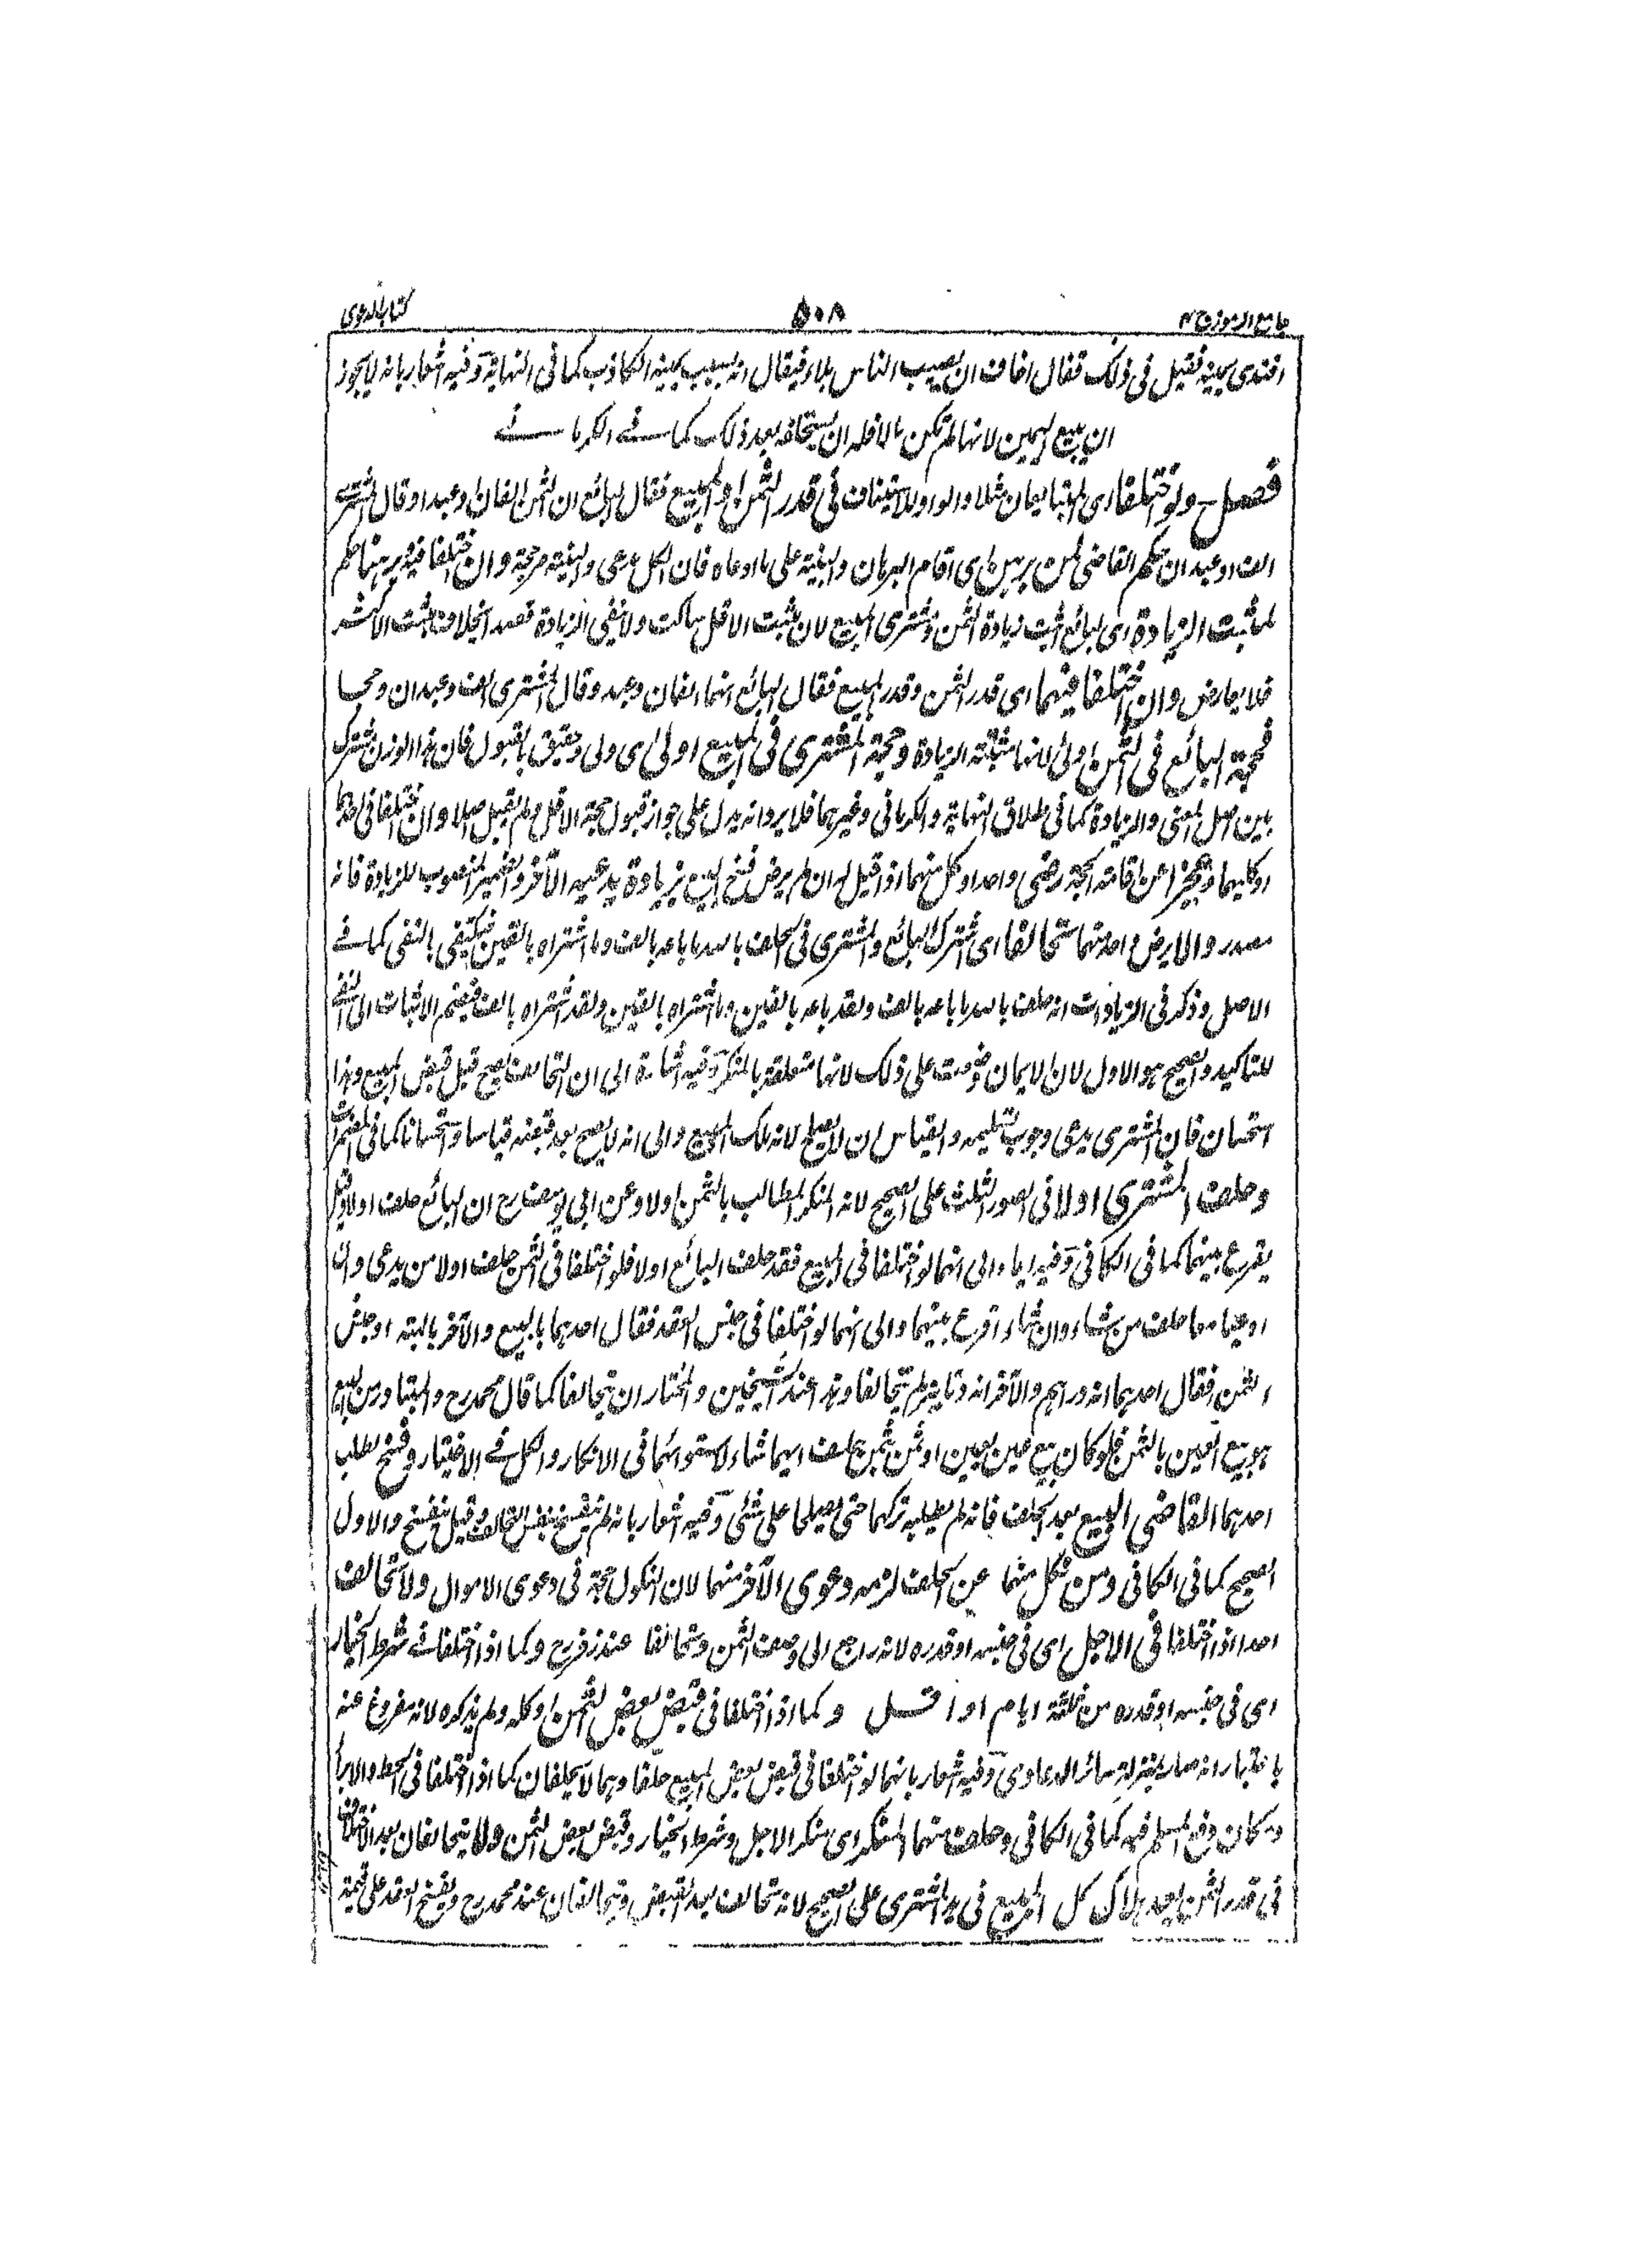 جامع الرموز ج ٢
٥٠٨
كتاب الدعوى
افتدى يمينه فقيل فى ذلك فقال اخاف ان يصيب الناس بلاء فيقال انه بسبب يمينه الكاذب كما فى النهاية وفيه اشعار بانه لا يجوز
ان يبيع اليمين لانها لم تكن مالا فله ان يستحلفه بعد ذلك كما فى الكرمانى
فصل ولو اختلفا اى المتبايعان مثلا والواو للاستيناف فى قدر الثمن او المبيع فقال البائع ان الثمن الفان او عبد او قال المشترى
الف او عبدان حكم القاضى لمن برهن اى اقام البرهان والبينة على ما ادعاه فان الكل مدعى والبينة مرجحة وان اختلفا فيه وبرهنا حكم
لمثبت الزيادة اى البائع اثبت زيادة الثمن والمشترى المبيع لان مثبت الاقل ساكت ولا نفى الزيادة قصدا بخلاف مثبت الاكثر
فلا يعارض وان اختلفا فيهما اى قدر الثمن وقدر المبيع فقال البائع انهما الفان وعبد وقال المشترى الف وعبدان وحجا
فحجة البائع فى الثمن اولى لانها مثبتة الزيادة وحجة المشترى فى المبيع اولى اى ولى وحقيق بالقبول فان هذا الوزن مشترك
بين اصل المعنى والزيادة كما فى طلاق النهاية والكرمانى وغيرهما فلا يرد انه يدل على جواز قبول حجة الاقل ولم يقبل اصلا وان اختلفا فى احدهما
او كليهما وعجزا عن اقامة الحجة رضى واحد او كل منهما اذا قيل له ان لم يرض فسخ البيع بزيادة يدعيه الآخر والضمير المنصوب للزيادة فانه
مصدر والا يرض واحد منهما تحالفا اى اشترك البائع والمشترى فى الحلف بالله ما باعه بالف وما اشتراه بالفين فيكتفى بالنفى كما فى
الاصل وذكر فى الزيادات انه حلف بالله ما باعه بالف ولقد باعه بالفين وما اشتراه بالفين ولقد اشتراه بالف فيضم الاثبات الى النفى
للتاكيد والصحيح هو الاول لان الايمان وضعت على ذلك لانها متعلقة بالمنكر وفيه اشارة الى ان التحالف يصح قبل قبض المبيع وهذا
استحسان فان المشترى يدعى وجوب تسليمه والقياس ان لا يصلح لانه ملك المبيع والى انه لا يصح بعد قبضه قياسا واستحسانا كما فى المضمرات
وحلف المشترى اولا فى الصور الثلث على الصحيح لانه المنكر المطالب بالثمن اولا وعن ابى يوسف رح ان البائع حلف اولا وقيل
يقرع بينهما كما فى الكافى وفيه ايماء الى انهما لو اختلفا فى المبيع فقد حلف البائع اولا فلو اختلفا فى الثمن حلف اولا من يدعى وان
ادعيا معا حلف من شاء وان شاء اقرع بينهما والى انهما لو اختلفا فى جنس العقد فقال احدهما بالبيع والآخر بالهبة او جنس
الثمن فقال احدهما انه دراهم والآخر انه دنانير لم يتحالفا وهذا عند الشيخين والمختار ان يتحالفا كما قال محمد رح والمتبادر من البيع
هو بيع العين بالثمن فلو كان بيع عين بعين او ثمن بثمن حلف ايهما شاء لاستوائهما فى الانكار والكل فى الاختيار وفسخ بطلب
احدهما القاضى البيع بعد الحلف فانه لم يطلبه تركهما حتى يصلحا على شئى وفيه اشعار بانه لم ينفسخ بنفس التحالف وقيل ينفسخ والاول
الصحيح كما فى الكافى ومن نكل منهما عن الحلف لزمه دعوى الآخر منهما لان النكول حجة فى دعوى الاموال ولا تحالف
احدا اذا اختلفا فى الاجل اى فى جنسه او قدره لانه راجع الى وصف الثمن وتحالفا عند زفر رح وكما اذا اختلفا فى شرط الخيار
اى فى جنسه او قدره من ثلثة ايام او اقل وكما اذا اختلفا فى قبض بعض الثمن او كله ولم يذكره لانه مفروغ عنه
باعتبار انه صار بمنزلة سائر الدعاوى وفيه اشعار بانهما لو اختلفا فى قبض بعض المبيع حلفا وهما لا يحلفان كما اذا اختلفا فى الحط والابراء
ومكان دفع المسلم فيه كما فى الكافى وحلف منهما المنكر اى منكر الاجل وشرط الخيار وقبض بعض الثمن ولا يتحالفان بعد الاختلاف
فى قدر الثمن بعد هلاك كل المبيع فى يد المشترى على الصحيح لانه تحالف بعد القبض ويتحالفان عند محمد رح ويفسخ العقد على قيمة